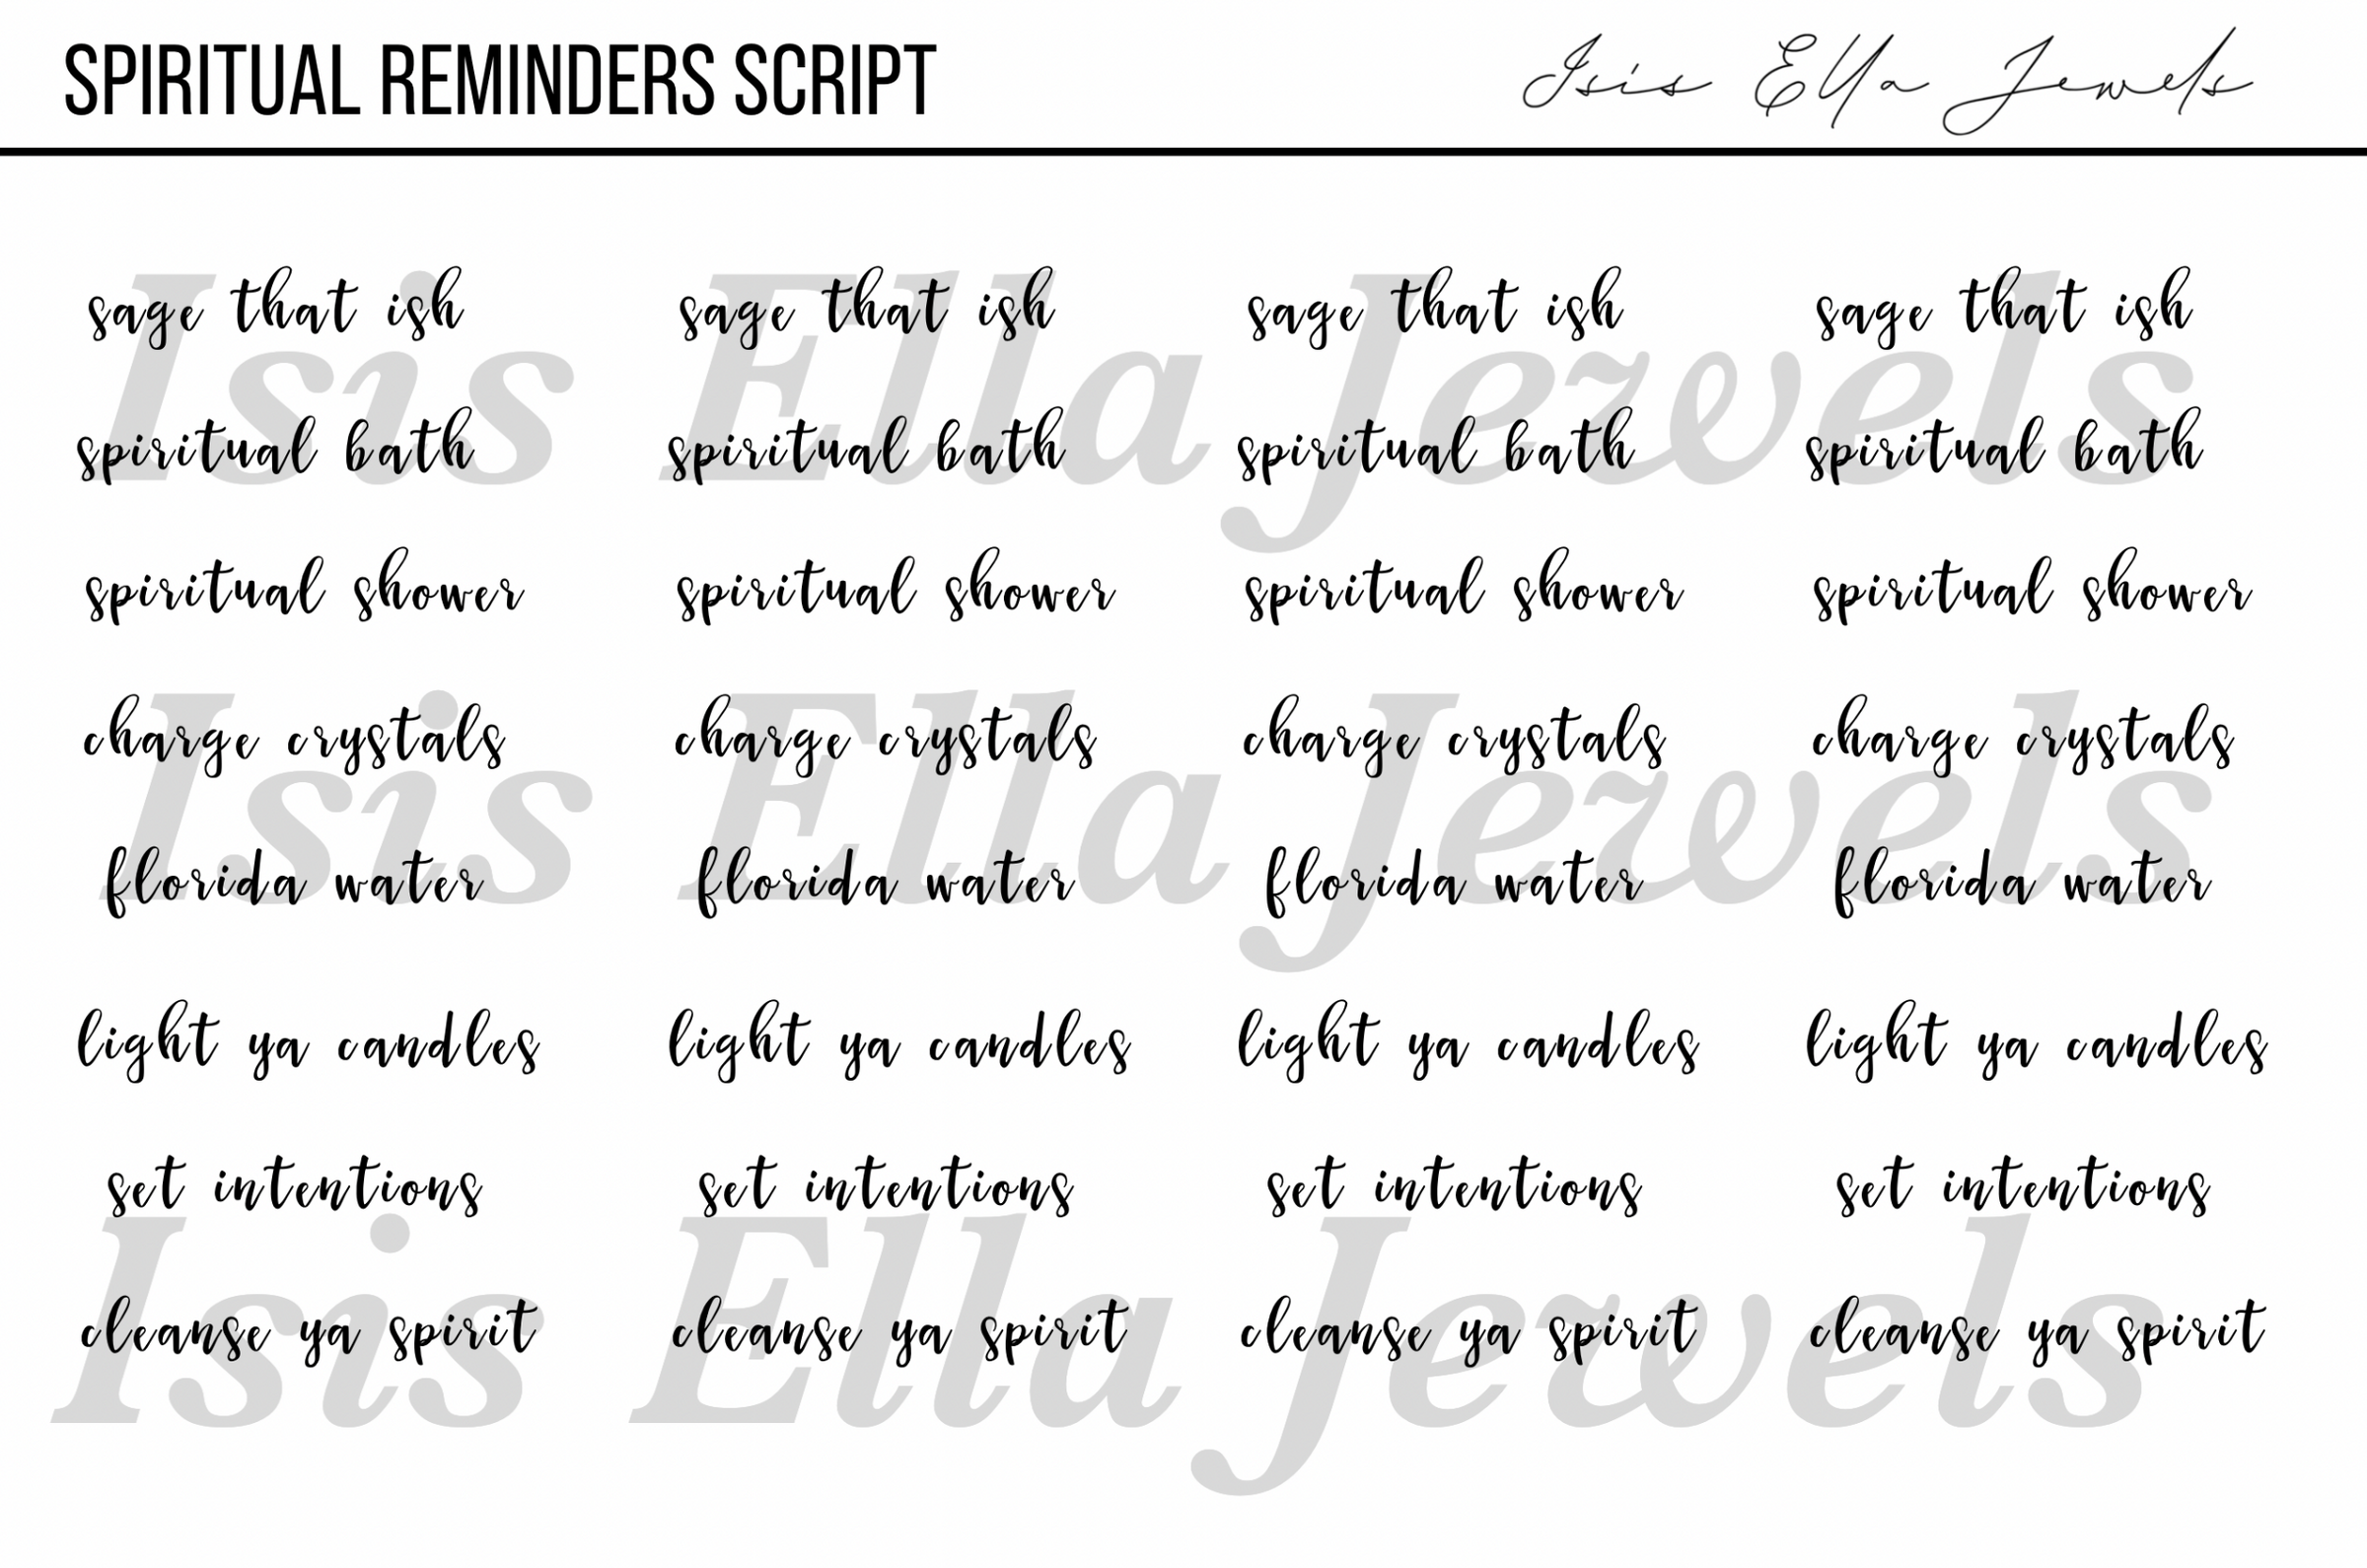 SPIRITUAL REMINDERS SCRIPT Isis Ella Jewels
sage that ish sage that ish sage that ish sage that ish
Isis Ella Jewels
spiritual bath spiritual bath spiritual bath spiritual bath
spiritual shower spiritual shower spiritual shower spiritual shower
charge crystals charge crystals charge crystals charge crystals
Isis Ella Jewels
florida water florida water florida water florida water
light ya candles light ya candles light ya candles light ya candles
set intentions set intentions set intentions set intentions
Isis Ella Jewels
cleanse ya spirit cleanse ya spirit cleanse ya spirit cleanse ya spirit